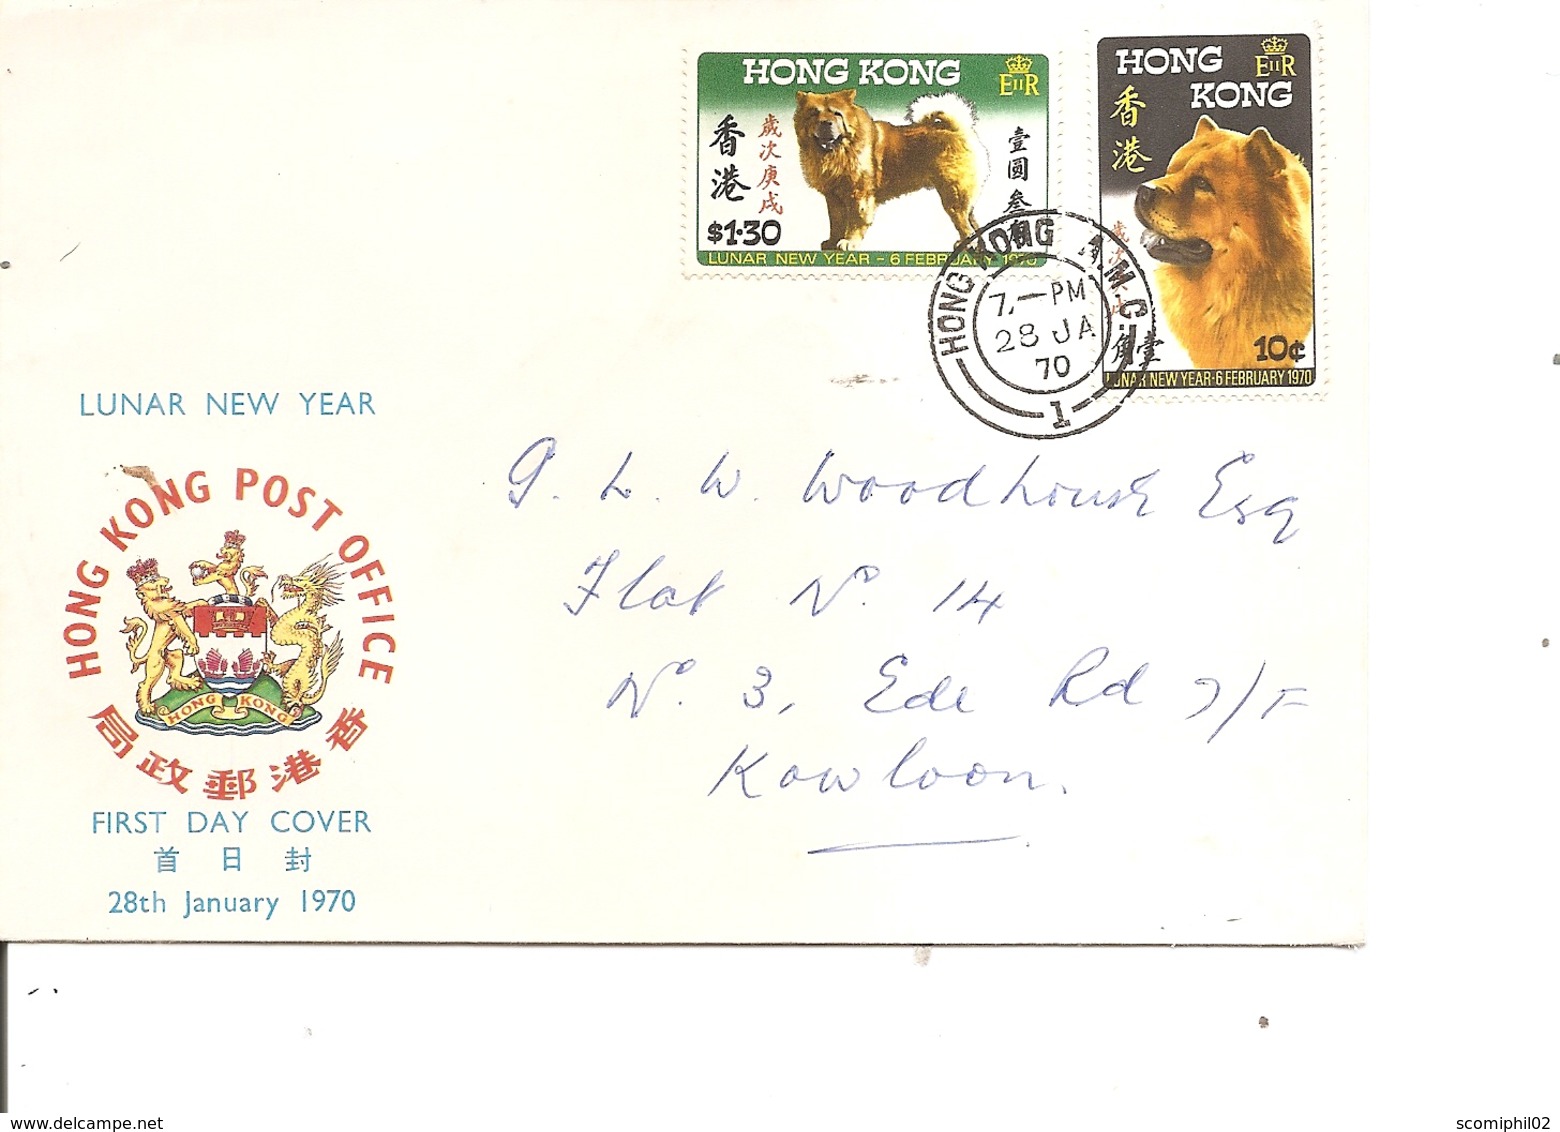 HONG KONG
EIIR
香港
歲次庚戌
壹圓叁
$1·30
LUNAR NEW YEAR - 6 FEBRUARY 1970
HONG
KONG
EIIR
香港
歲次
壹角
10¢
LUNAR NEW YEAR·6 FEBRUARY 1970
HONG KONG A.M.C.
7,—PM
28 JA
70
1
LUNAR NEW YEAR
HONG KONG POST OFFICE
HONG KONG
香港郵政局
FIRST DAY COVER
首日封
28th January 1970
G. L. W. Woodhouse Esq
Flat No. 14
No. 3, Ede Rd 7/F
Kowloon.
scomiphil02